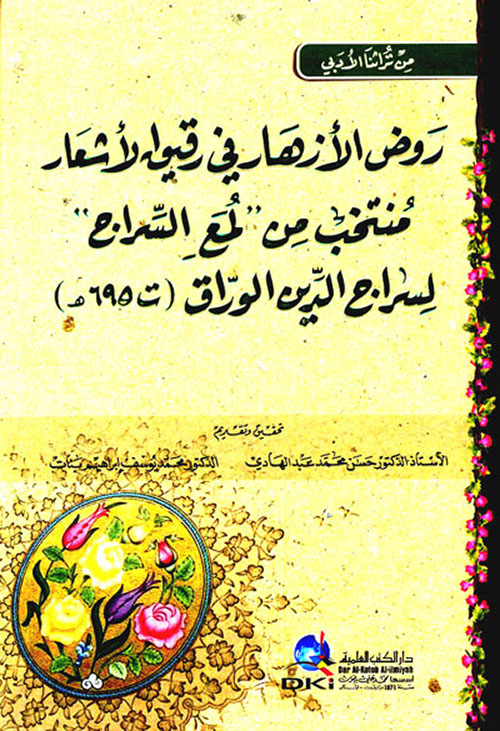 من تراثنا الأدبي
روض الأزهار في رقيق الأشعار
منتخب من "لمع السّراج"
لسراج الدّين الورّاق (ت ٦٩٥ هـ)
تحقيق وتقديم
الأستاذ الدكتور حسن محمد عبد الهادي
الدكتور محمد يوسف إبراهيم بنات
دار الكتب العلمية
Dar Al-Kotob Al-ilmiyah
DKi